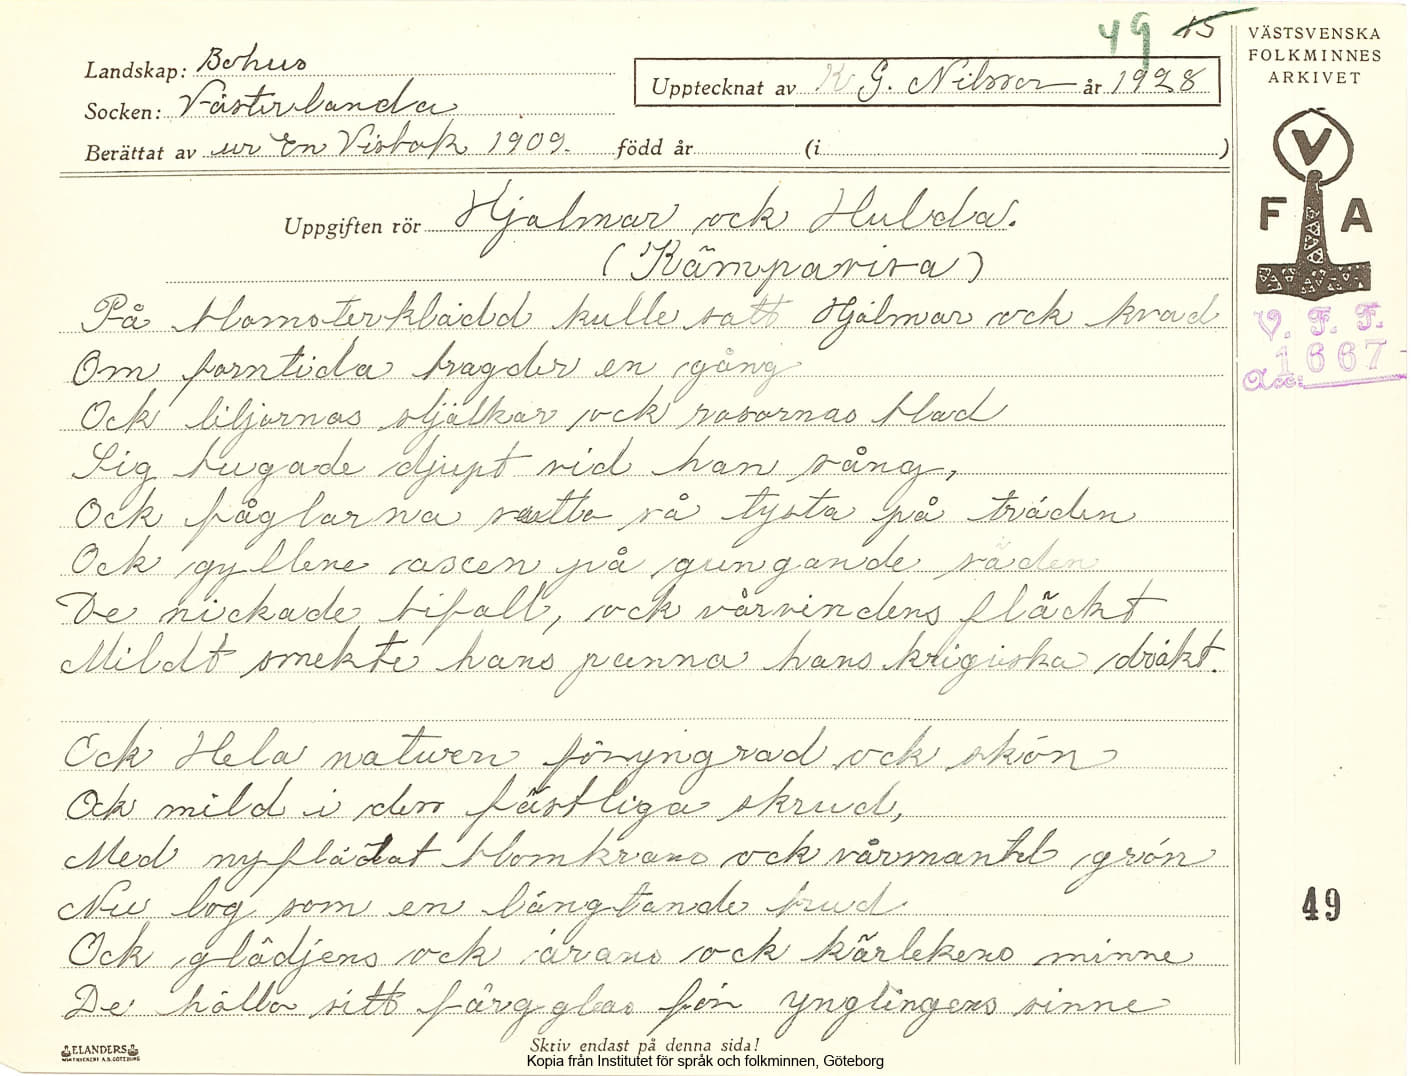 49 15
VÄSTSVENSKA
FOLKMINNES
ARKIVET
Landskap: Bohus
Upptecknat av K G. Nilsson år 1928
Socken: Västerlanda
Berättat av ur En Visbok 1909. född år (i )
V
F A
Uppgiften rör Hjalmar ock Hulda.
(Kämpavisa)
V. F. F.
Acc: 1667
På blomsterklädd kulle satt Hjálmar ock kvad
Om forntida bragder en gång
Ock liljornas stjälkar ock rosornas blad
Sig bugade djupt vid han sång,
Ock fåglarna sutto så tysta på träden
Ock gyllene axen på gungande säden
De nickade bifall, ock vårvindens fläckt
Mildt smekte hans panna hans krigiska dräkt.
Ock Hela naturen föryngrad ock skön
Ock mild i den fästliga skrud,
Med nyflätat blomkrans ock vårmantel grön
Nu log som en längtande brud
49
Ock glädjens ock ärans ock kärlekens minne
De hålla sitt färgglas för ynglingens sinne
ELANDERS
Skriv endast på denna sida!
Kopia från Institutet för språk och folkminnen, Göteborg